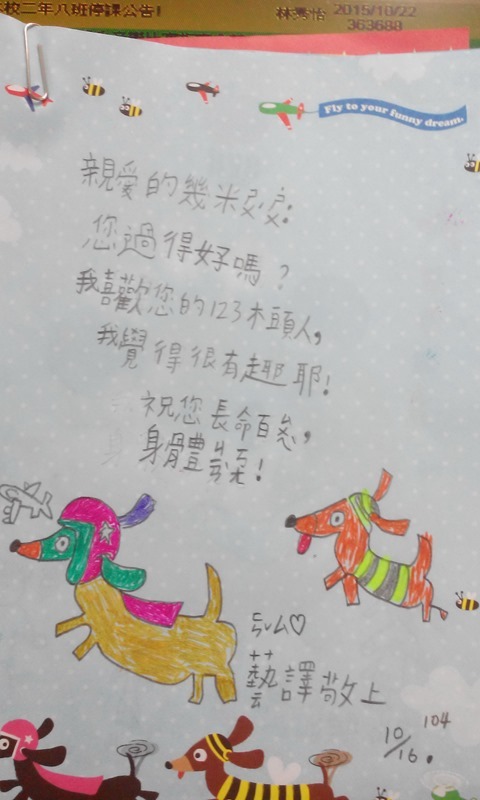 本校二年八班停課公告! 林秀怡 2015/10/22
363688
Fly to your funny dream.
親愛的幾米ㄕㄨˊㄕㄨˊ:
您過得好嗎?
我喜歡您的123木頭人,
我覺得很有趣耶!
祝您長命百歲,
身體
藝譯敬上
104
10/16.